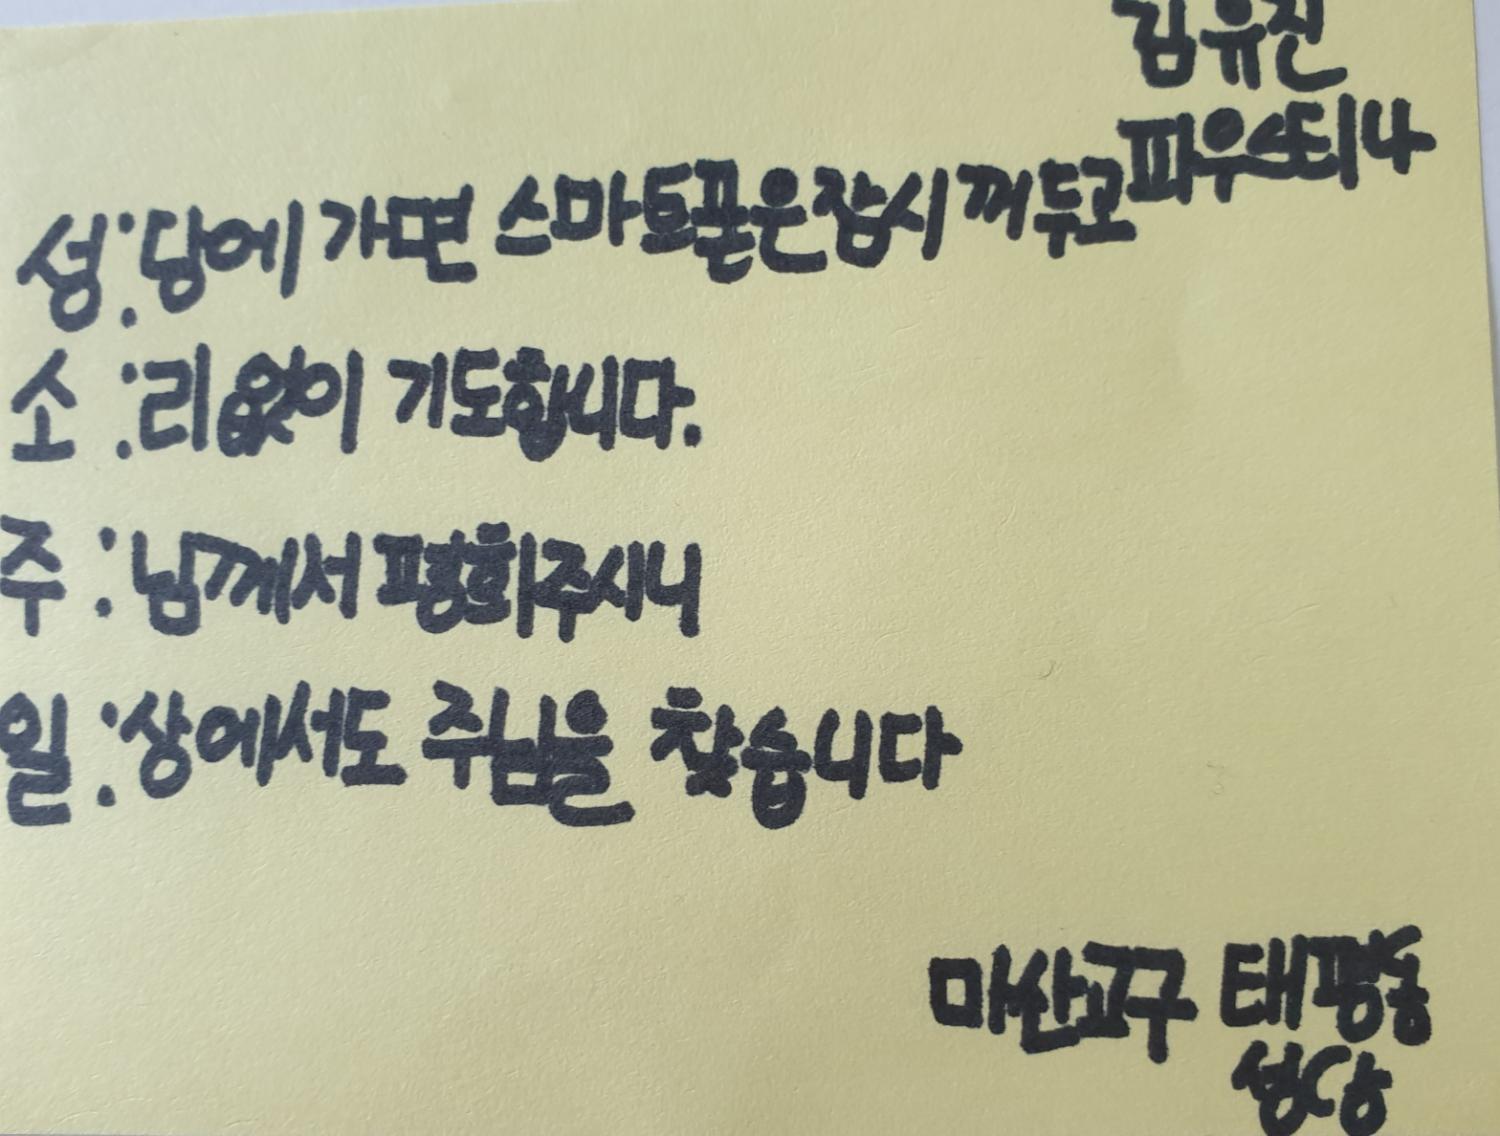 김유진
파우스띠나
성:당에 가면 스마트폰은잠시 꺼두고
소:리없이 기도합니다.
주:님께서 평화주시니
일:상에서도 주님을 찾습니다
마산교구 태평동
성당